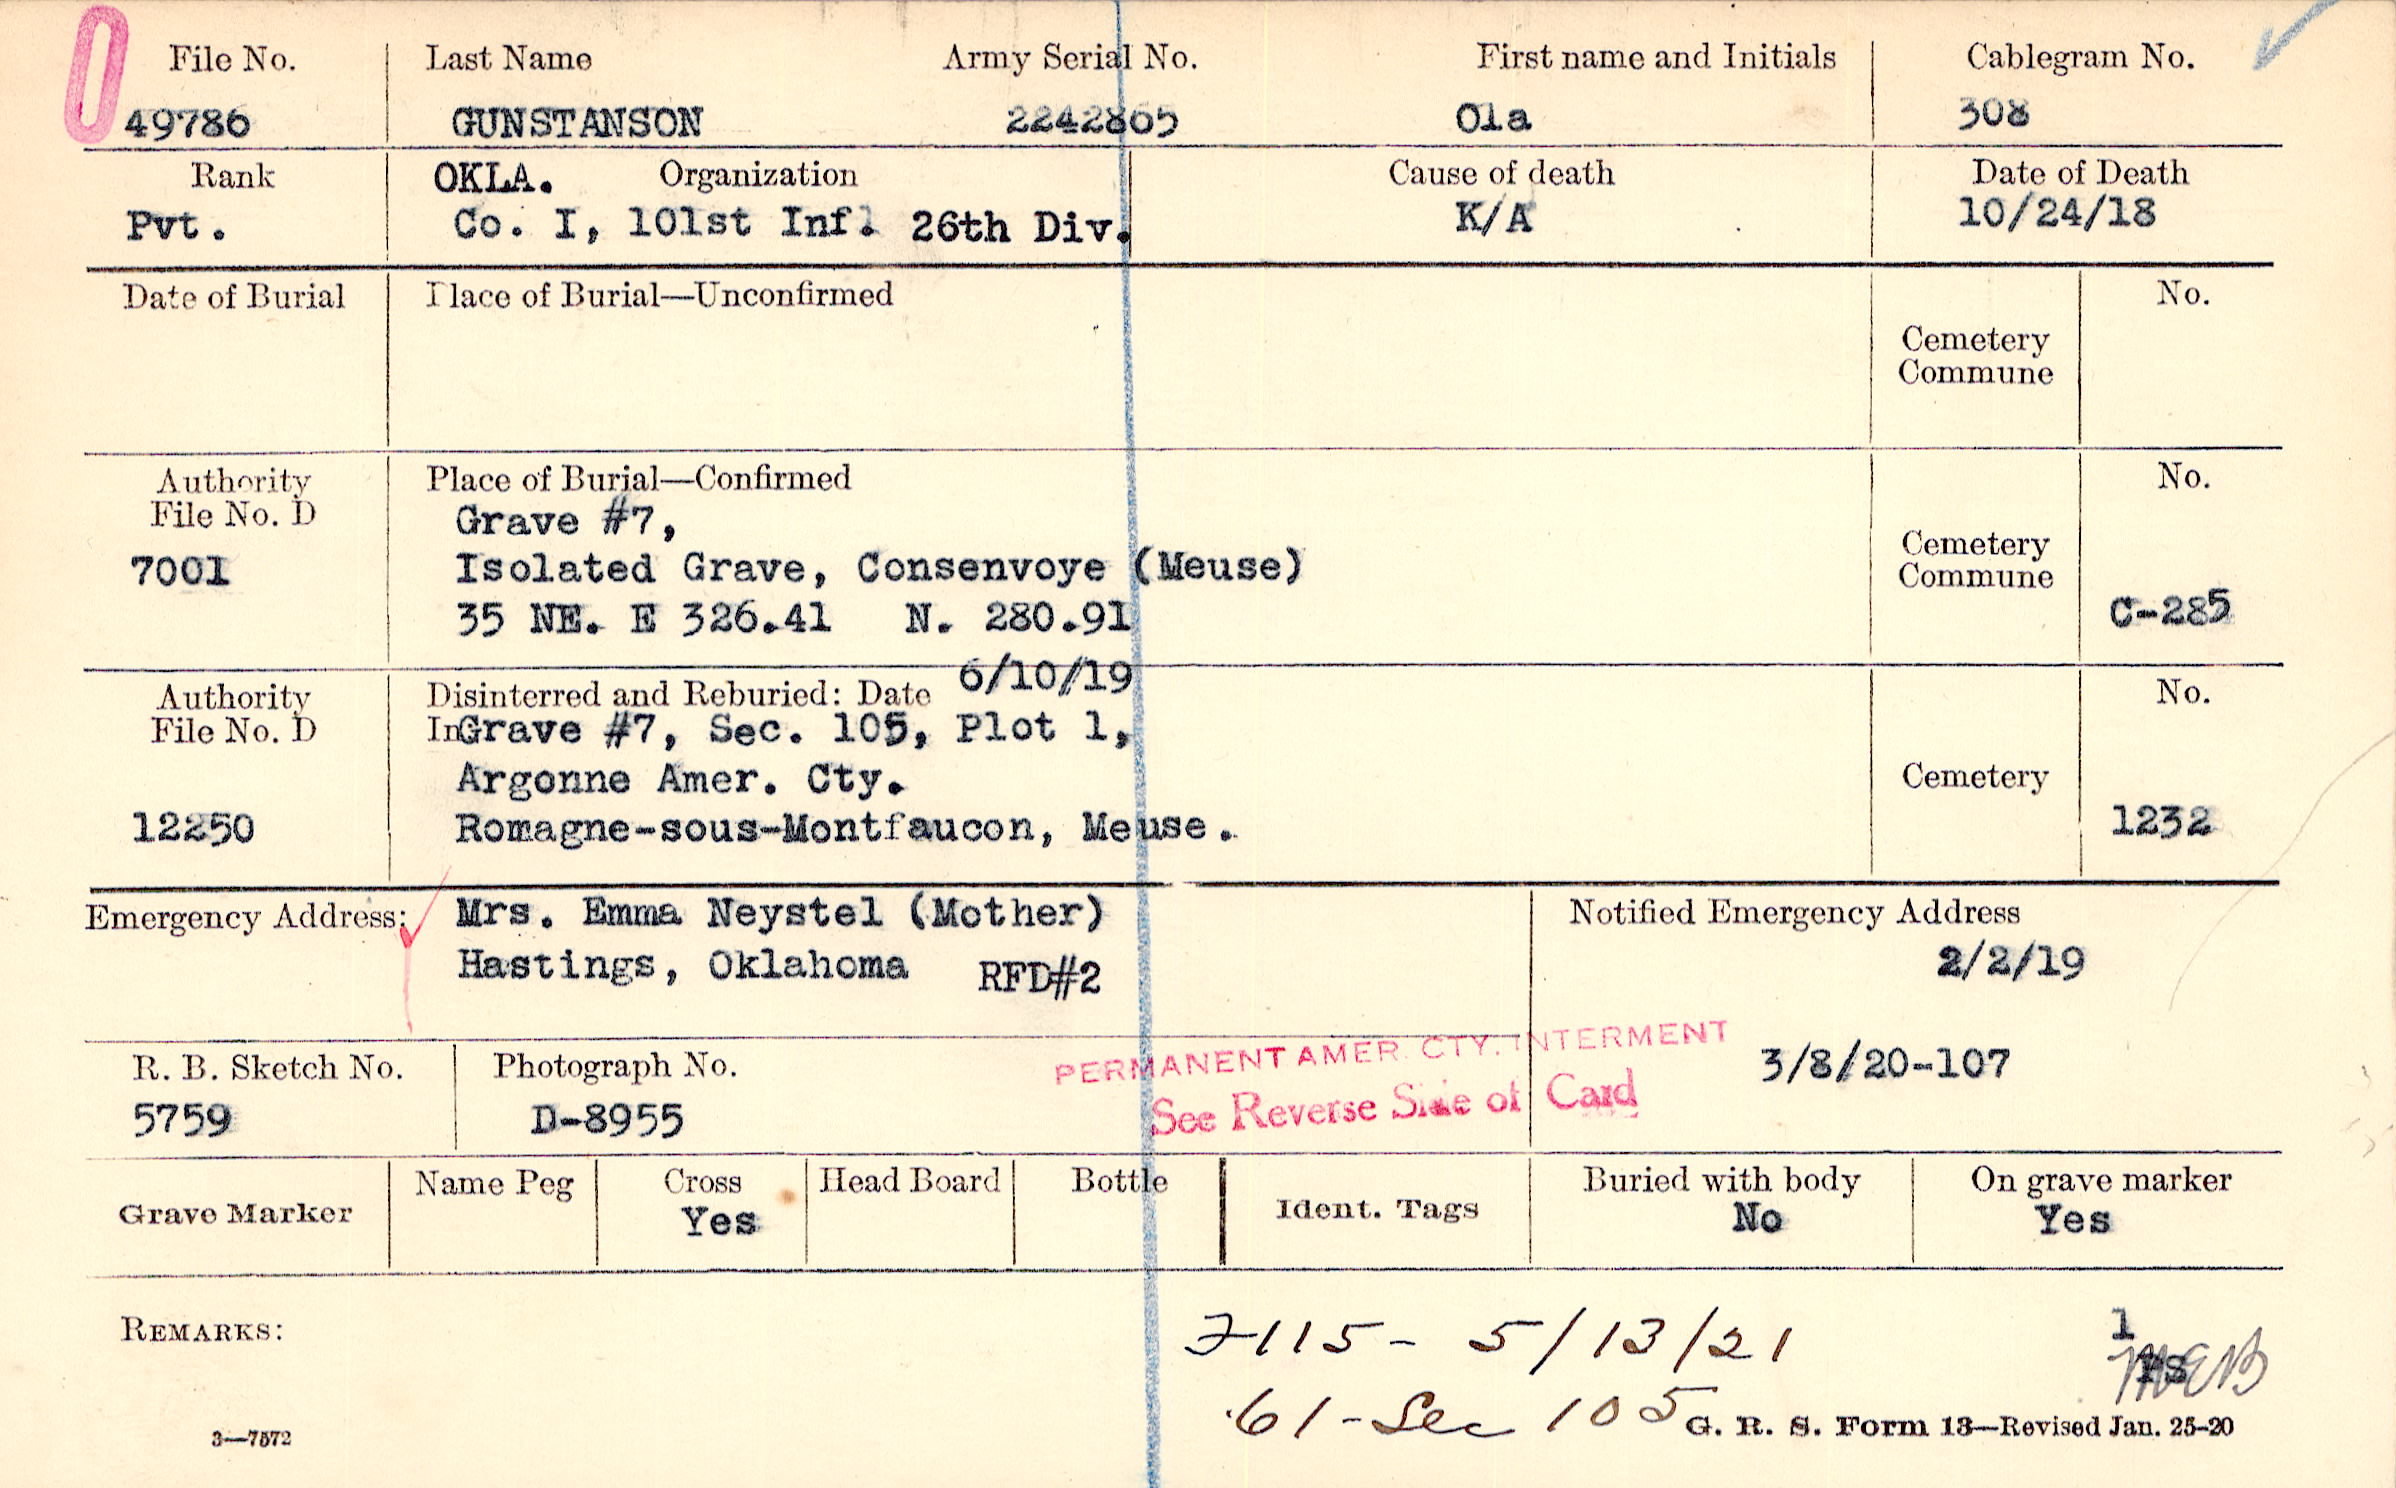 File No. Last Name Army Serial No. First name and Initials Cablegram No.
49786 GUNSTANSON 2242865 Ola 308
Rank OKLA. Organization Cause of death Date of Death
Pvt. Co. I, 101st Inf. 26th Div. K/A 10/24/18
Date of Burial Place of Burial—Unconfirmed No.
Cemetery
Commune
Authority Place of Burial—Confirmed No.
File No. D Grave #7,
7001 Isolated Grave, Consenvoye (Meuse) Cemetery
Commune
35 NE. E 326.41 N. 280.91 C-285
Authority Disinterred and Reburied: Date 6/10/19 No.
File No. D In Grave #7, Sec. 105, Plot 1,
Argonne Amer. Cty. Cemetery
12250 Romagne-sous-Montfaucon, Meuse. 1232
Emergency Address: Mrs. Emma Neystel (Mother) Notified Emergency Address
Hastings, Oklahoma RFD#2 2/2/19
PERMANENT AMER. CTY. INTERMENT
R. B. Sketch No. Photograph No. 3/8/20-107
See Reverse Side of Card
5759 D-8955
Grave Marker Name Peg Cross Head Board Bottle Ident. Tags Buried with body On grave marker
Yes No Yes
REMARKS: 7115- 5/13/21 1
61-Sec 105
3—7572 G. R. S. Form 13—Revised Jan. 25-20